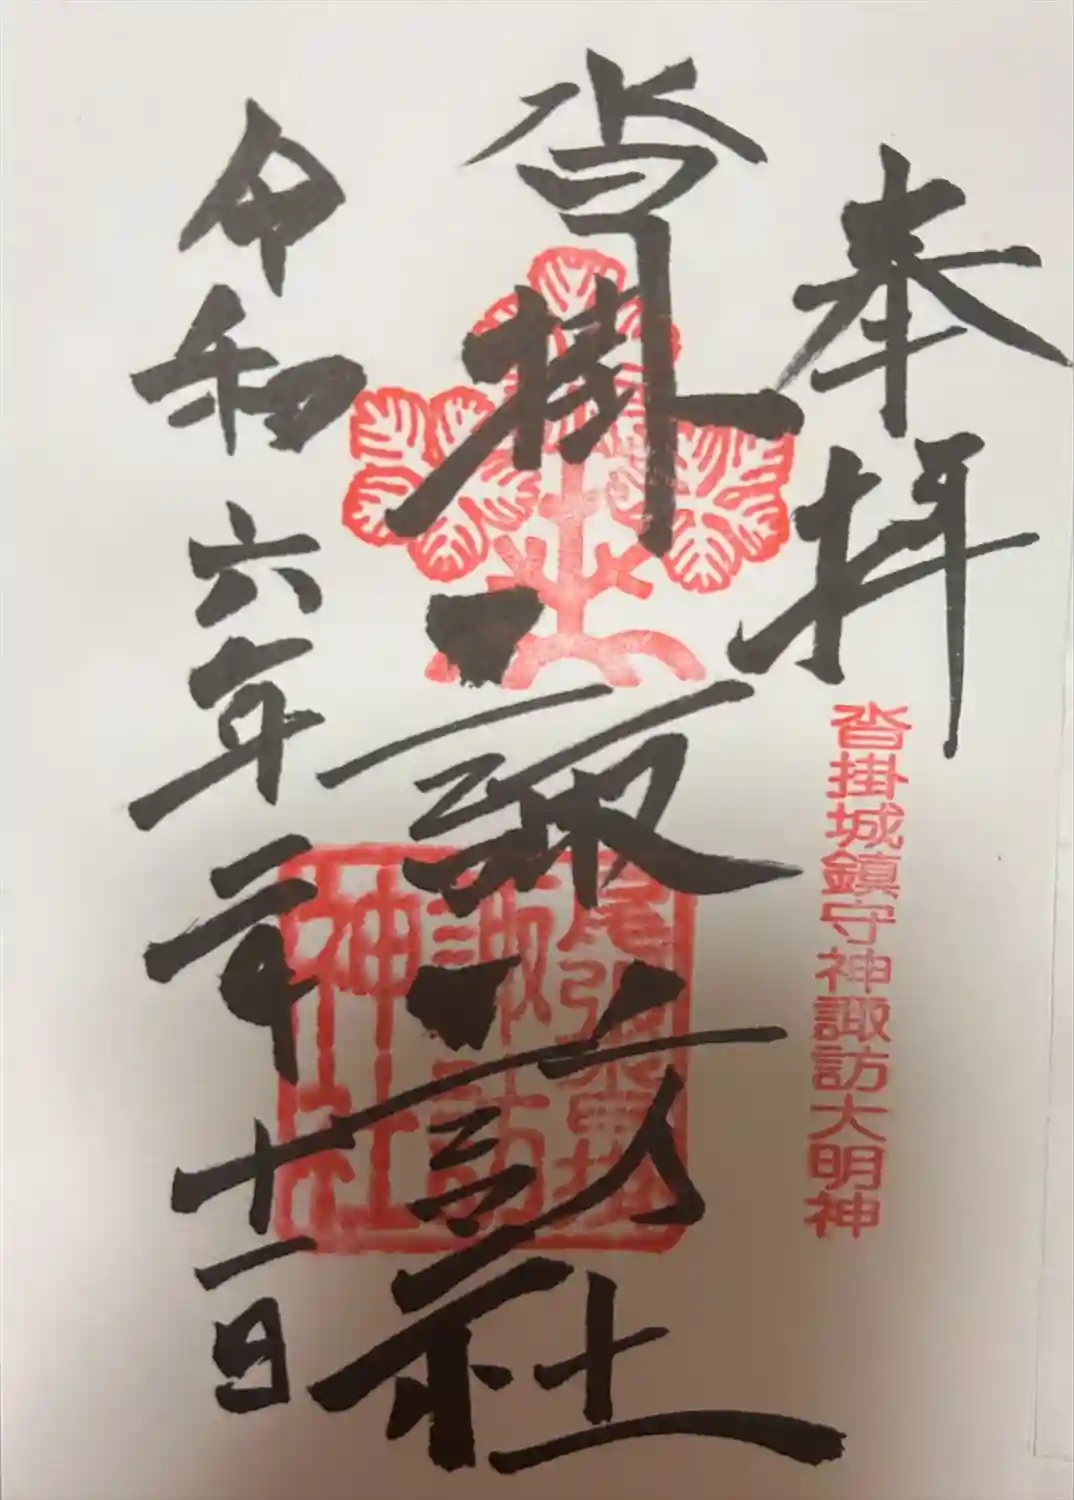 奉拝
沓掛城鎮守神諏訪大明神
沓掛諏訪社
諏訪
神社
令和六年二月十一日